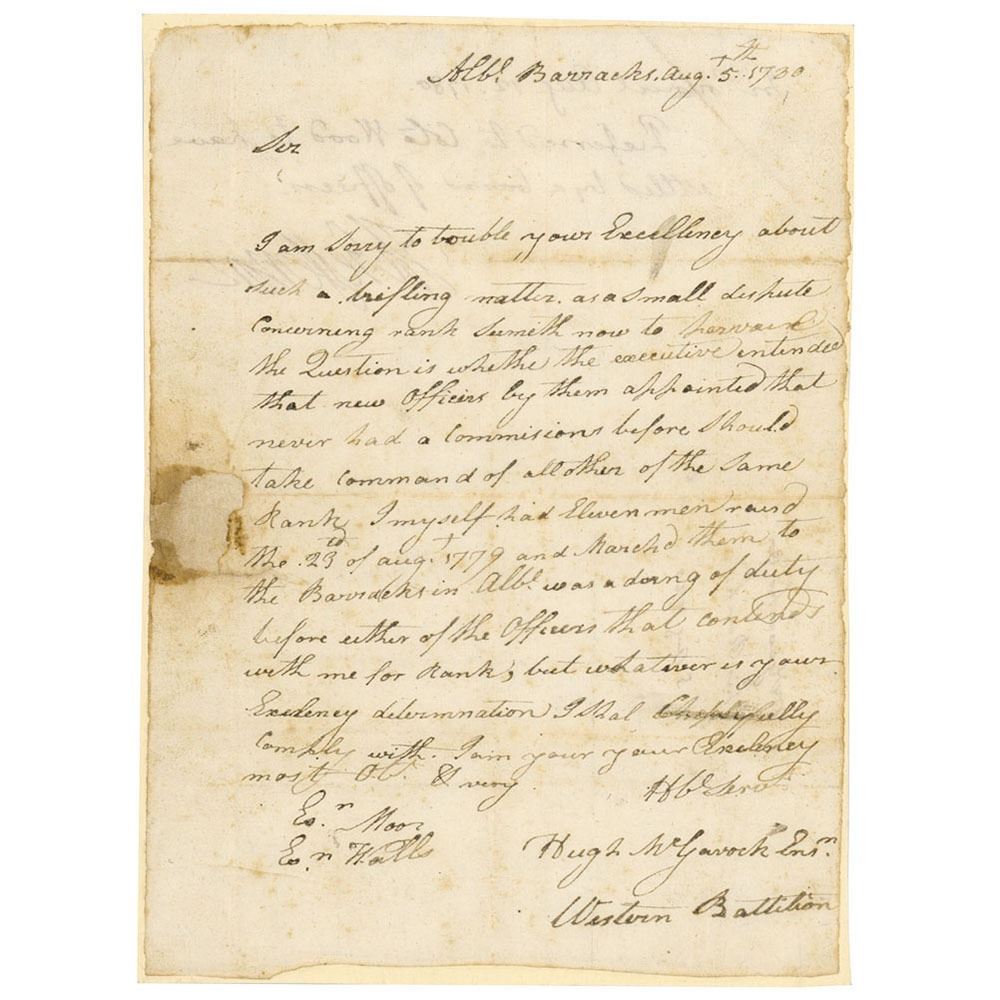 Albe. Barracks. Augt. 5th. 1780
Sir
I am Sorry to trouble your Excellency about
such a trifling matter. as a small dispute
Concerning rank Sumeth now to
the Question is whethe the executive intended
that new Officers by them appointed that
never had a Commisions before Should
take Command of all other of the Same
Rank, I myself had Eleven men raisd
the .23d of augt. 1779 and Marchd them to
the Barracks in Albe. was a doing of duty
before either of the Officers that contends
with me for Rank; but whatever is your
Exelency determnation I Shal
Comply with. I am your your Exelency
most Obt. & very Hbe. Servt
Esn. Moor
Esn Walls
Hugh McGavock Ensn.
Western Battilion
Referred to Colo Wood to have